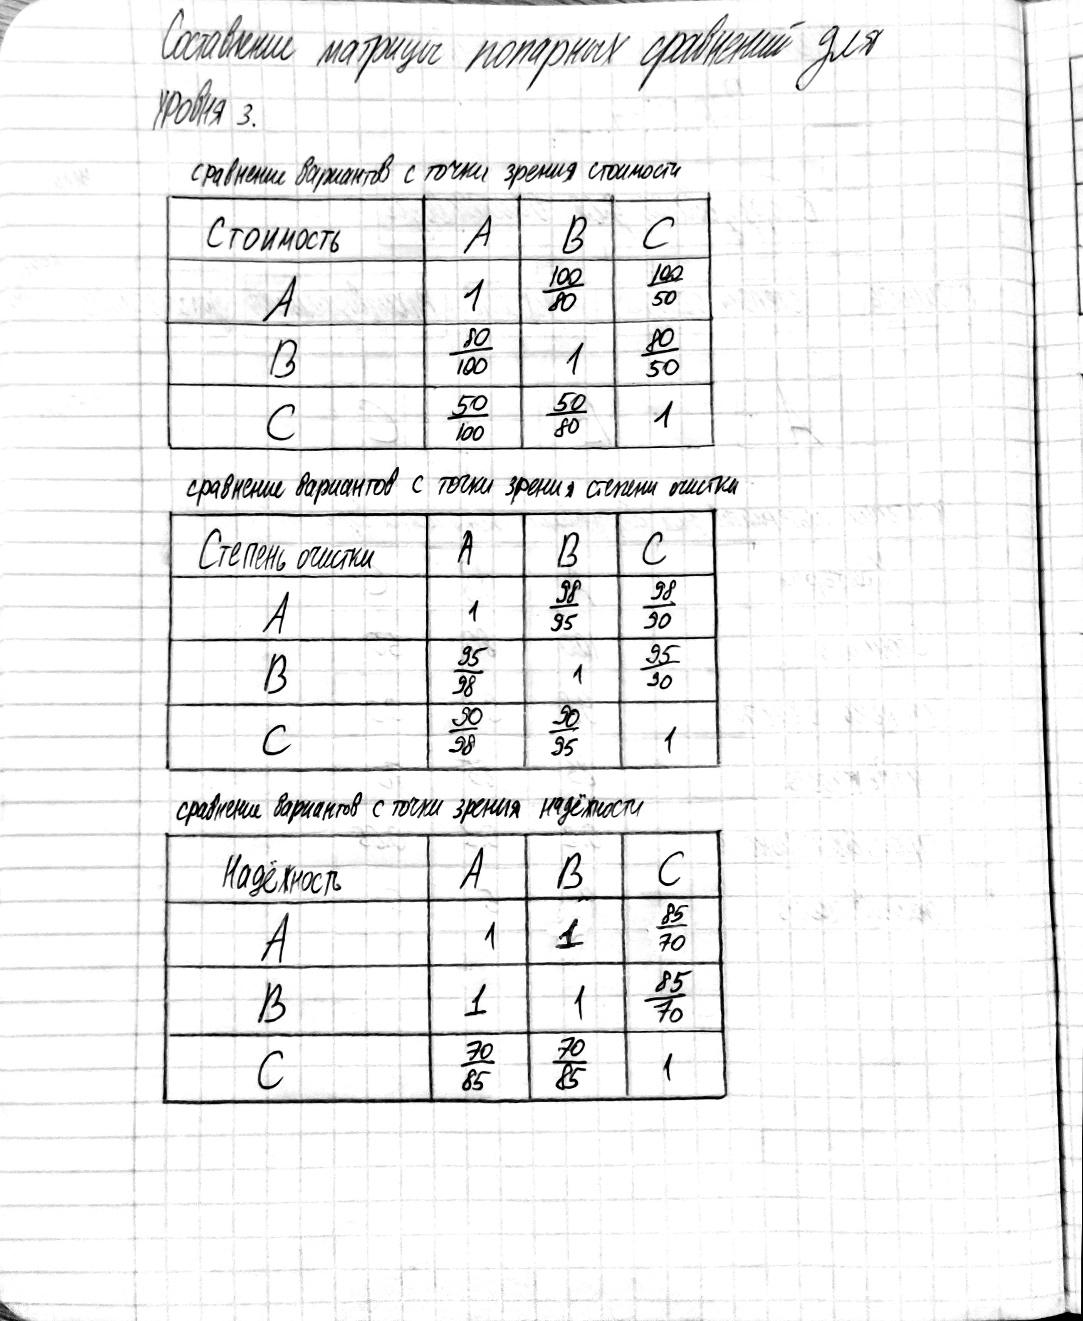 Составление матрицы попарных сравнений для
уровня 3.
сравнение вариантов с точки зрения стоимости
Стоимость A B C
A 1 100/80 100/50
B 80/100 1 80/50
C 50/100 50/80 1
сравнение вариантов с точки зрения степени очистки
Степень очистки A B C
A 1 98/95 98/90
B 95/98 1 95/90
C 90/98 90/95 1
сравнение вариантов с точки зрения надёжности
Надёжность A B C
A 1 1 85/70
B 1 1 85/70
C 70/85 70/85 1